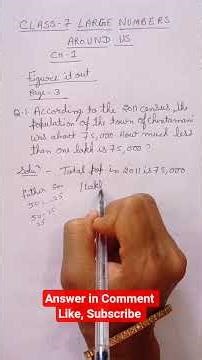 CLASS-7 LARGE NUMBERS
AROUND US
CH-1
Figure it out
Page-3
Q.1 According to the 2011 census, the
population of the town of Chintamani
was about 75,000. How much less
than one lakh is 75,000?
Soln - Total pop in 2011 is 75,000
Father Son
50 25
50
25
1 lakh
Answer in Comment
Like, Subscribe